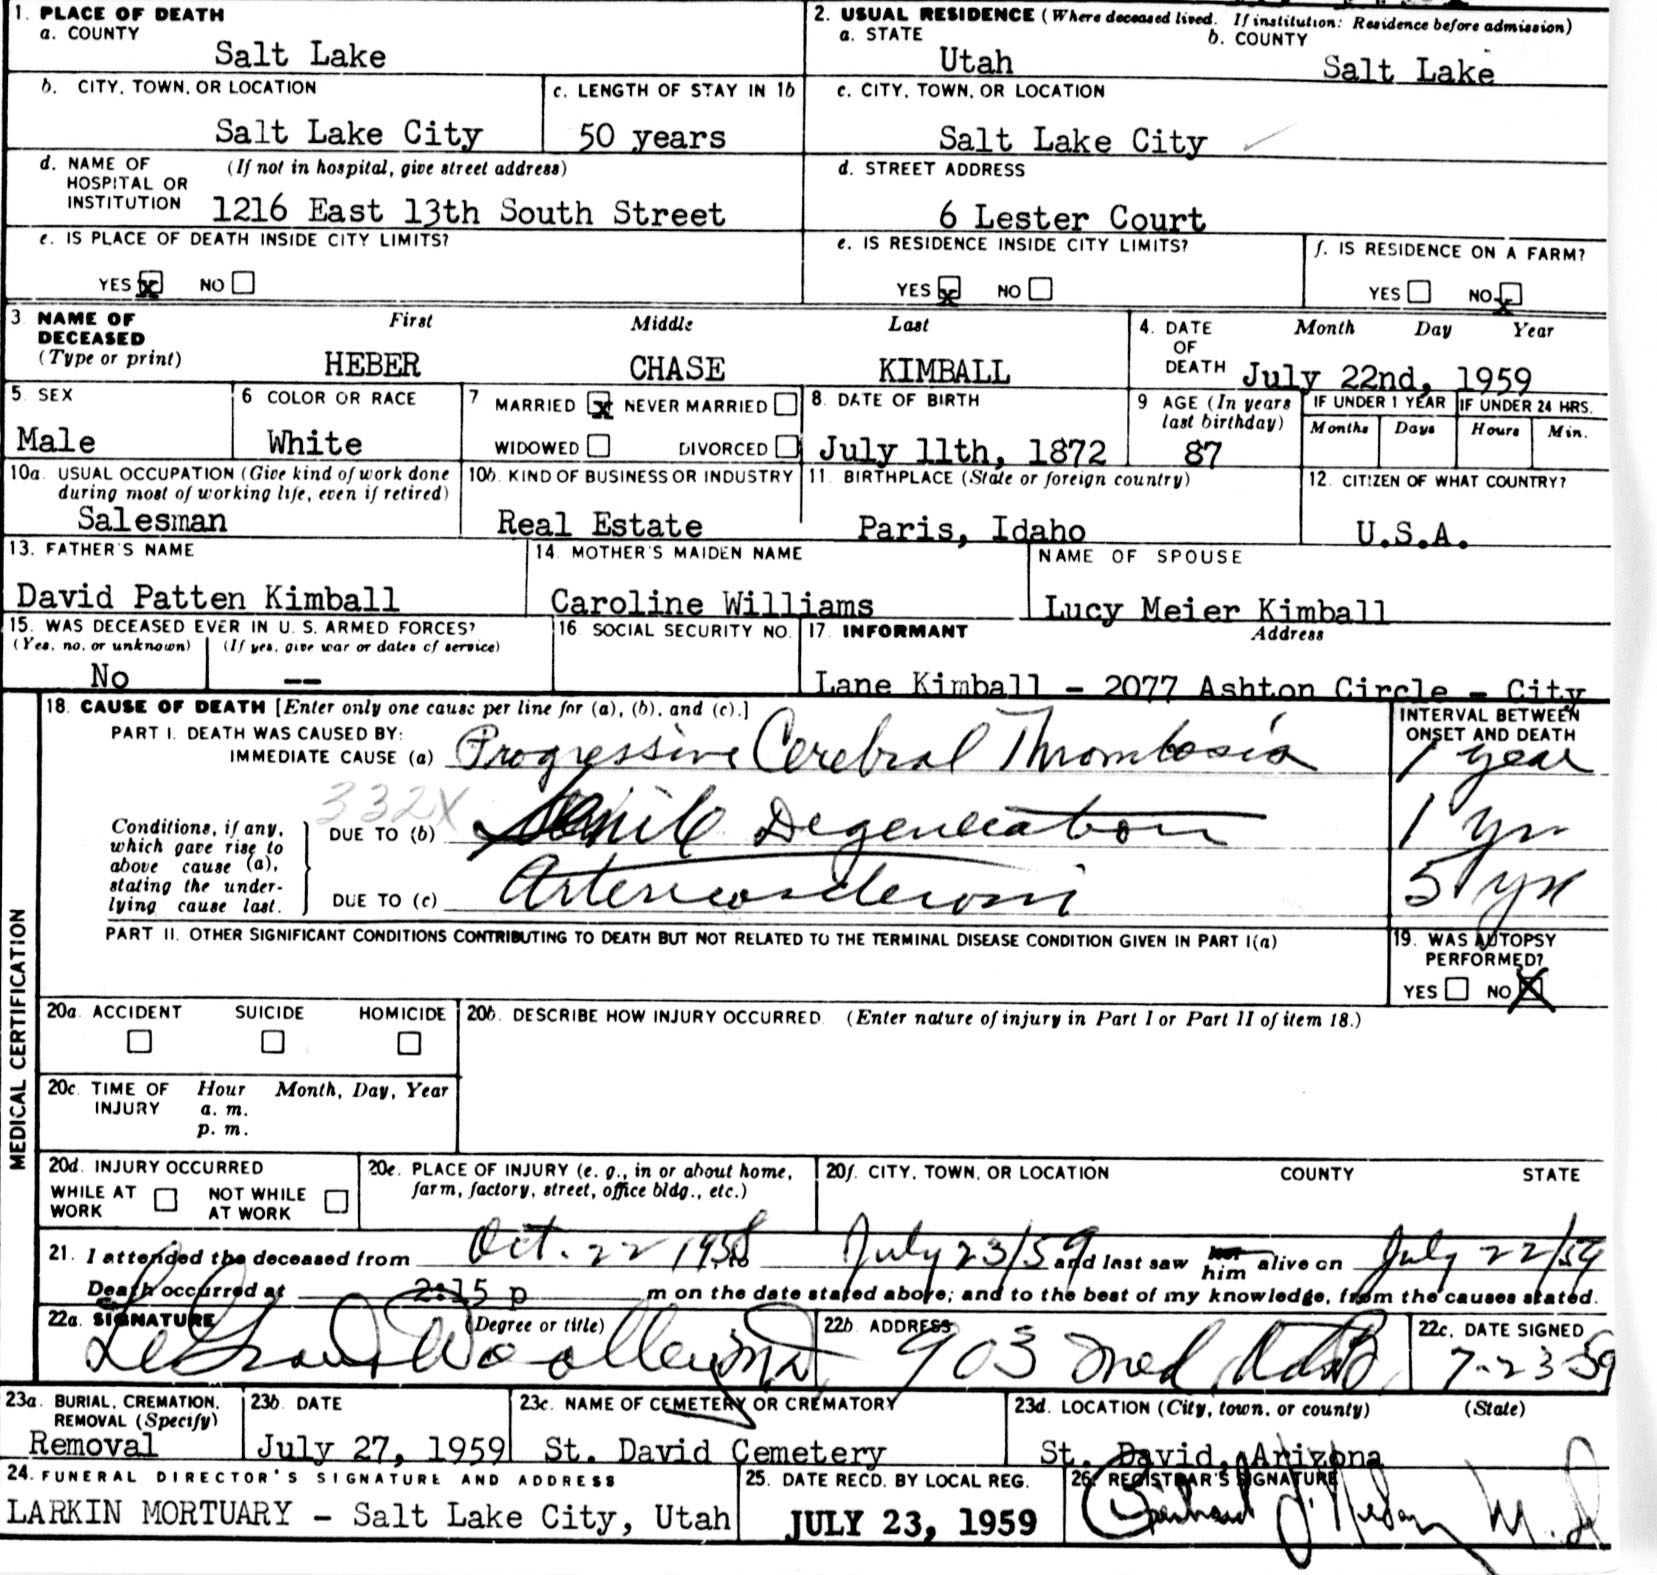 1. PLACE OF DEATH
a. COUNTY
Salt Lake
2. USUAL RESIDENCE (Where deceased lived. If institution: Residence before admission)
a. STATE
Utah
b. COUNTY
Salt Lake
b. CITY, TOWN, OR LOCATION
Salt Lake City
c. LENGTH OF STAY IN 1b
50 years
c. CITY, TOWN, OR LOCATION
Salt Lake City
d. NAME OF HOSPITAL OR INSTITUTION
(If not in hospital, give street address)
1216 East 13th South Street
d. STREET ADDRESS
6 Lester Court
e. IS PLACE OF DEATH INSIDE CITY LIMITS?
YES x NO
e. IS RESIDENCE INSIDE CITY LIMITS?
YES x NO
f. IS RESIDENCE ON A FARM?
YES NO x
3 NAME OF DECEASED
(Type or print)
First Middle Last
HEBER CHASE KIMBALL
4. DATE OF DEATH
Month Day Year
July 22nd, 1959
5. SEX
Male
6 COLOR OR RACE
White
7 MARRIED x NEVER MARRIED
WIDOWED DIVORCED
8. DATE OF BIRTH
July 11th, 1872
9 AGE (In years last birthday)
87
IF UNDER 1 YEAR
Months Days
IF UNDER 24 HRS.
Hours Min.
10a. USUAL OCCUPATION (Give kind of work done
during most of working life, even if retired)
Salesman
10b. KIND OF BUSINESS OR INDUSTRY
Real Estate
11. BIRTHPLACE (State or foreign country)
Paris, Idaho
12. CITIZEN OF WHAT COUNTRY?
U.S.A.
13. FATHER'S NAME
David Patten Kimball
14. MOTHER'S MAIDEN NAME
Caroline Williams
NAME OF SPOUSE
Lucy Meier Kimball
15. WAS DECEASED EVER IN U. S. ARMED FORCES?
(Yes, no, or unknown) (If yes, give war or dates of service)
No --
16. SOCIAL SECURITY NO.
17. INFORMANT Address
Lane Kimball - 2077 Ashton Circle - City
MEDICAL CERTIFICATION
18. CAUSE OF DEATH [Enter only one cause per line for (a), (b), and (c).]
INTERVAL BETWEEN ONSET AND DEATH
PART I. DEATH WAS CAUSED BY:
IMMEDIATE CAUSE (a) Progressive Cerebral Thrombosis 1 year
332X
Conditions, if any, which gave rise to above cause (a), stating the underlying cause last.
DUE TO (b) Senile Degeneration 1 yr
DUE TO (c) Arteriosclerosis 5 yr
PART II. OTHER SIGNIFICANT CONDITIONS CONTRIBUTING TO DEATH BUT NOT RELATED TO THE TERMINAL DISEASE CONDITION GIVEN IN PART I(a)
19. WAS AUTOPSY PERFORMED?
YES NO X
20a. ACCIDENT SUICIDE HOMICIDE
20b. DESCRIBE HOW INJURY OCCURRED. (Enter nature of injury in Part I or Part II of item 18.)
20c. TIME OF INJURY
Hour Month, Day, Year
a. m.
p. m.
20d. INJURY OCCURRED
WHILE AT WORK NOT WHILE AT WORK
20e. PLACE OF INJURY (e. g., in or about home,
farm, factory, street, office bldg., etc.)
20f. CITY, TOWN, OR LOCATION COUNTY STATE
21. I attended the deceased from Oct. 22 1958 July 23/59 and last saw him alive on July 22/59
Death occurred at 2:15 p m on the date stated above; and to the best of my knowledge, from the causes stated.
22a. SIGNATURE (Degree or title)
LeGrand Woolley M.D.
22b. ADDRESS
903 Med. Arts B.
22c. DATE SIGNED
7-23 59
23a. BURIAL, CREMATION, REMOVAL (Specify)
Removal
23b. DATE
July 27, 1959
23c. NAME OF CEMETERY OR CREMATORY
St. David Cemetery
23d. LOCATION (City, town, or county) (State)
St. David, Arizona
24. FUNERAL DIRECTOR'S SIGNATURE AND ADDRESS
LARKIN MORTUARY - Salt Lake City, Utah
25. DATE RECD. BY LOCAL REG.
JULY 23, 1959
26. REGISTRAR'S SIGNATURE
J. Nelson M.D.